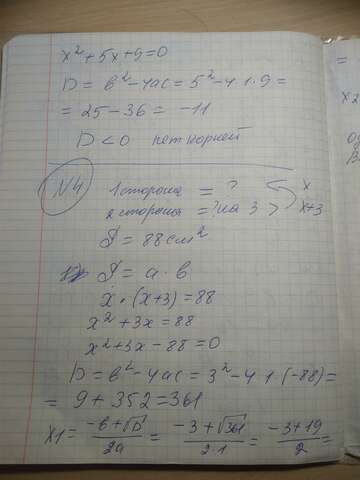 x² + 5x + 9 = 0
D = b² - 4ac = 5² - 4·1·9 =
= 25 - 36 = -11
D < 0 нет корней
N4
1 сторона = ? x
2 сторона = ? на 3 > x+3
S = 88 см²
S = a · b
x · (x+3) = 88
x² + 3x = 88
x² + 3x - 88 = 0
D = b² - 4ac = 3² - 4·1·(-88) =
= 9 + 352 = 361
x1 = -b + √D / 2a = -3 + √361 / 2·1 = -3 + 19 / 2 =
=
x2